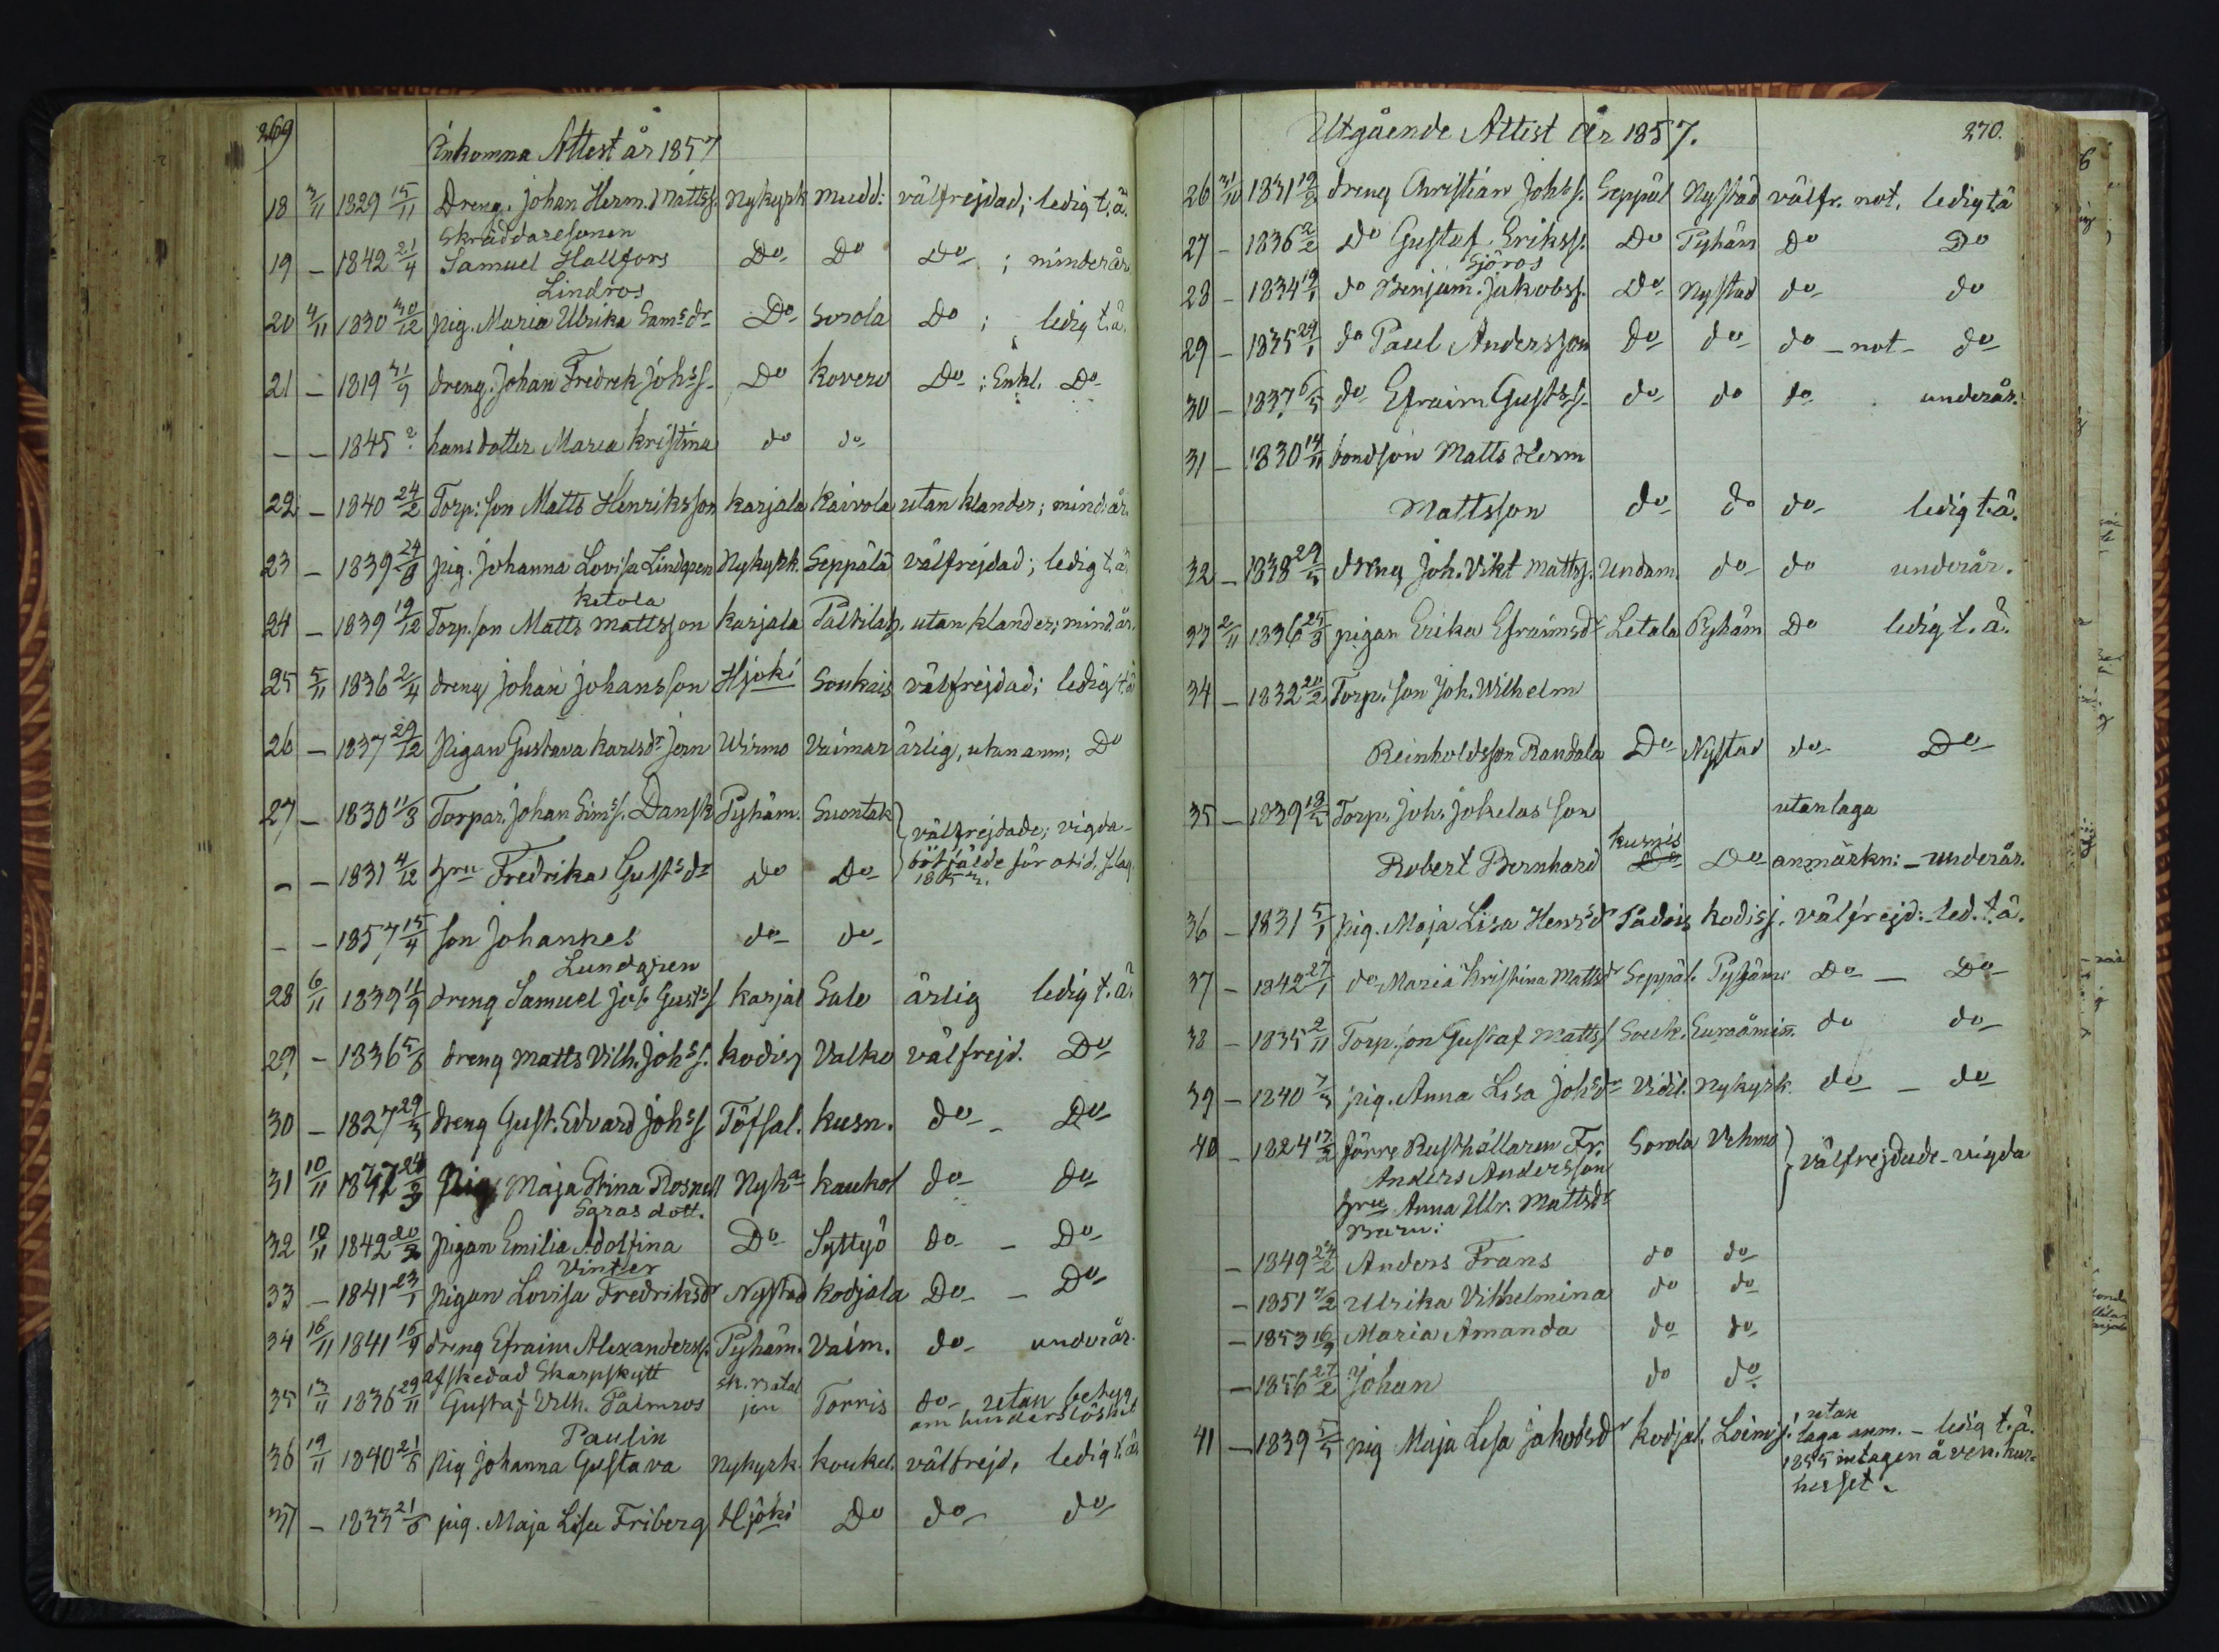 269
Inkomna Attest år 1857
18 3/11 1829 15/11 Dreng. Johan Herm. Mattss. Nykyrk Mudd: välfrejdad; ledig t. ä.
Skräddaresonen
19 – 1842 21/4 Samuel Hallfors Do Do Do ; minderår
Lindros
20 4/11 1830 30/12 pig. Maria Ulrika Sams dr Do Sorola Do ; ledig t. ä.
21 – 1819 /9 dreng. Johan Fredrek Johs s. Do Kovero Do ; Enkl. Do
– – 1845 ? hans dotter Maria Kristina do do
22 – 1840 24/2 Torp: son Matts Henriksson Karjala Kaivola utan klander; mind. år.
23 – 1839 24/8 pig. Johanna Lovisa Lindgren Nykyrk. Seppälä välfrejdad; ledig t. ä.
Ketola
24 – 1839 19/12 Torp. son Matts Mattsson Karjala utan klander; mind. år.
25 5/11 1836 2/4 dreng Johan Johansson Hjoki Soukais välfrejdad; ledig t. ä
26 – 1837 29/12 Pigan Gustava Karlsdr Jern Wirmo Vaimar ärlig, utan anm; Do
27 – 1830 11/8 Torpar. Johan Sims s. Dansk Pyhäm. Suontak välfrejdade; vigda
– – 1831 4/12 hru Fredrika Gusts dr Do Do bötfälde för otid. slag
– – 1857 15/4 son Johannes do do
Lundgren
28 6/11 1839 11/9 dreng Samuel Joh Gusts s Karjal Salo ärlig ledig t. ä.
29 – 1836 5/8 dreng Matts Vilh. Johs s. Kodisj Valko välfrejd. Do
30 – 1827 29/3 dreng Gust. Edvard Johs s Töfsal. Kusn. do – Do
31 10/11 pig Maja Stina Rosnell Nyka Kaukol do do
Sgras dott.
32 10/11 1842 20/2 pigan Emilia Adolfina Do Syttyö do – Do
Vinter
33 – 1841 23/1 pigan Lovisa Fredriksdr Nystad Kodjala Do – Do
34 16/11 1841 16/9 dreng Efraim Alexanderss. Pyhäm. Vaim. do underår.
afskedad Skarpskytt sk. Batal
35 17/11 1836 29/11 Gustaf Vilh. Palmros jon Torris do utan betyg
om hinderslöshet
Paulin
36 19/11 1840 21/5 pig Johanna Gustava Nykyrk. Koukel. välfrejd, ledig t. ä.
37 – 1833 21/8 pig. Maja Lisa Friberg Hjöki Do do do
Utgående Attest År 1857. 270.
26 31/10 1831 19/8 dreng Christian Johs s. Seppäl Nystad välfr. not. ledig t. ä
27 – 1836 2/2 do Gustaf Erikss. Do Pyhäm Do Do
Sjöros
28 – 1834 19/1 do Benjam. Jakobss. Do Nystad do do
29 – 1835 29/1 do Paul Andersson Do do do – not – do
30 – 1837 6/5 do Efraim Gusts s. do do do underår.
31 – 1830 14/11 bondson Matts Herm
Mattsson do do do ledig t. ä.
32 – 1838 29/4 dreng Joh. Vikt Mattss. Undam. do do underår.
33 2/11 1836 25/3 pigan Erika Efraimsdr Letala Pyhäm Do ledig t. ä.
34 – 1832 20/2 Torp. son Joh. Wilhelm
Reinholdsson Randala Do Nystad do Do
35 – 1839 18/5 Torp. Joh. Jokelas son utan laga
Robert Bernhard Kusnis Do anmärkn: – underår.
36 – 1831 5/1 pig. Maja Lisa Henrs dr Padois Kodisj. välfrejd: – led. t. ä.
37 – 1842 27/1 do Maria Kristina Mattsdr Seppäl. Pyhäm. Do – Do
38 – 1835 2/11 Torp. son Gustaf Mattss Souk. Euraåmin. do do
39 – 1840 7/3 pig. Anna Lisa Johs dr Vidil. Nykyrk. do – do
40 – 1824 17/2 förre Rusthållaren Fr. Sorola Vehmo välfrejdade – vigda
Anders Andersson
hru Anna Ulr. Mattsdr
Barn:
– 1849 24/2 Anders Frans do do
– 1851 9/2 Ulrika Vilhelmina do do
– 1853 16/9 Maria Amanda do do
– 1856 27/2 Johan do do
41 – 1839 5/5 pig Maja Lisa Jakobsdr Kodjal. Loimj. utan
laga anm. – ledig t. ä.
1855 intagen å ven. kur-
huset.